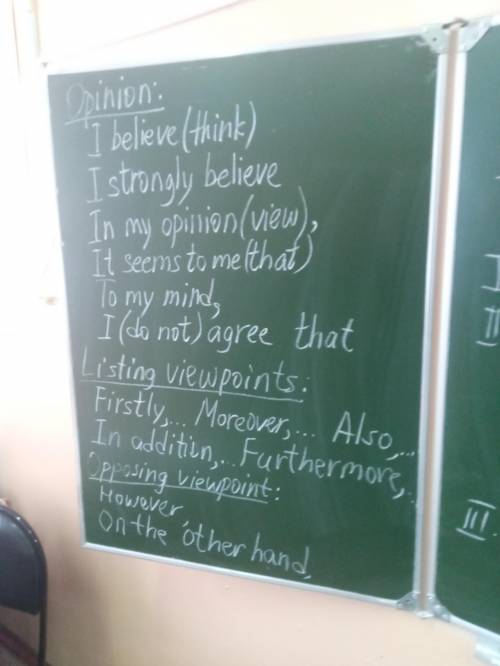 Opinion:
I believe (think)
I strongly believe
In my opinion (view),
It seems to me (that)
To my mind,
I (do not) agree that
Listing viewpoints:
Firstly,... Moreover,... Also,...
In additin,... Furthermore,...
Opposing viewpoint:
However,
On the other hand,
I
II
III.